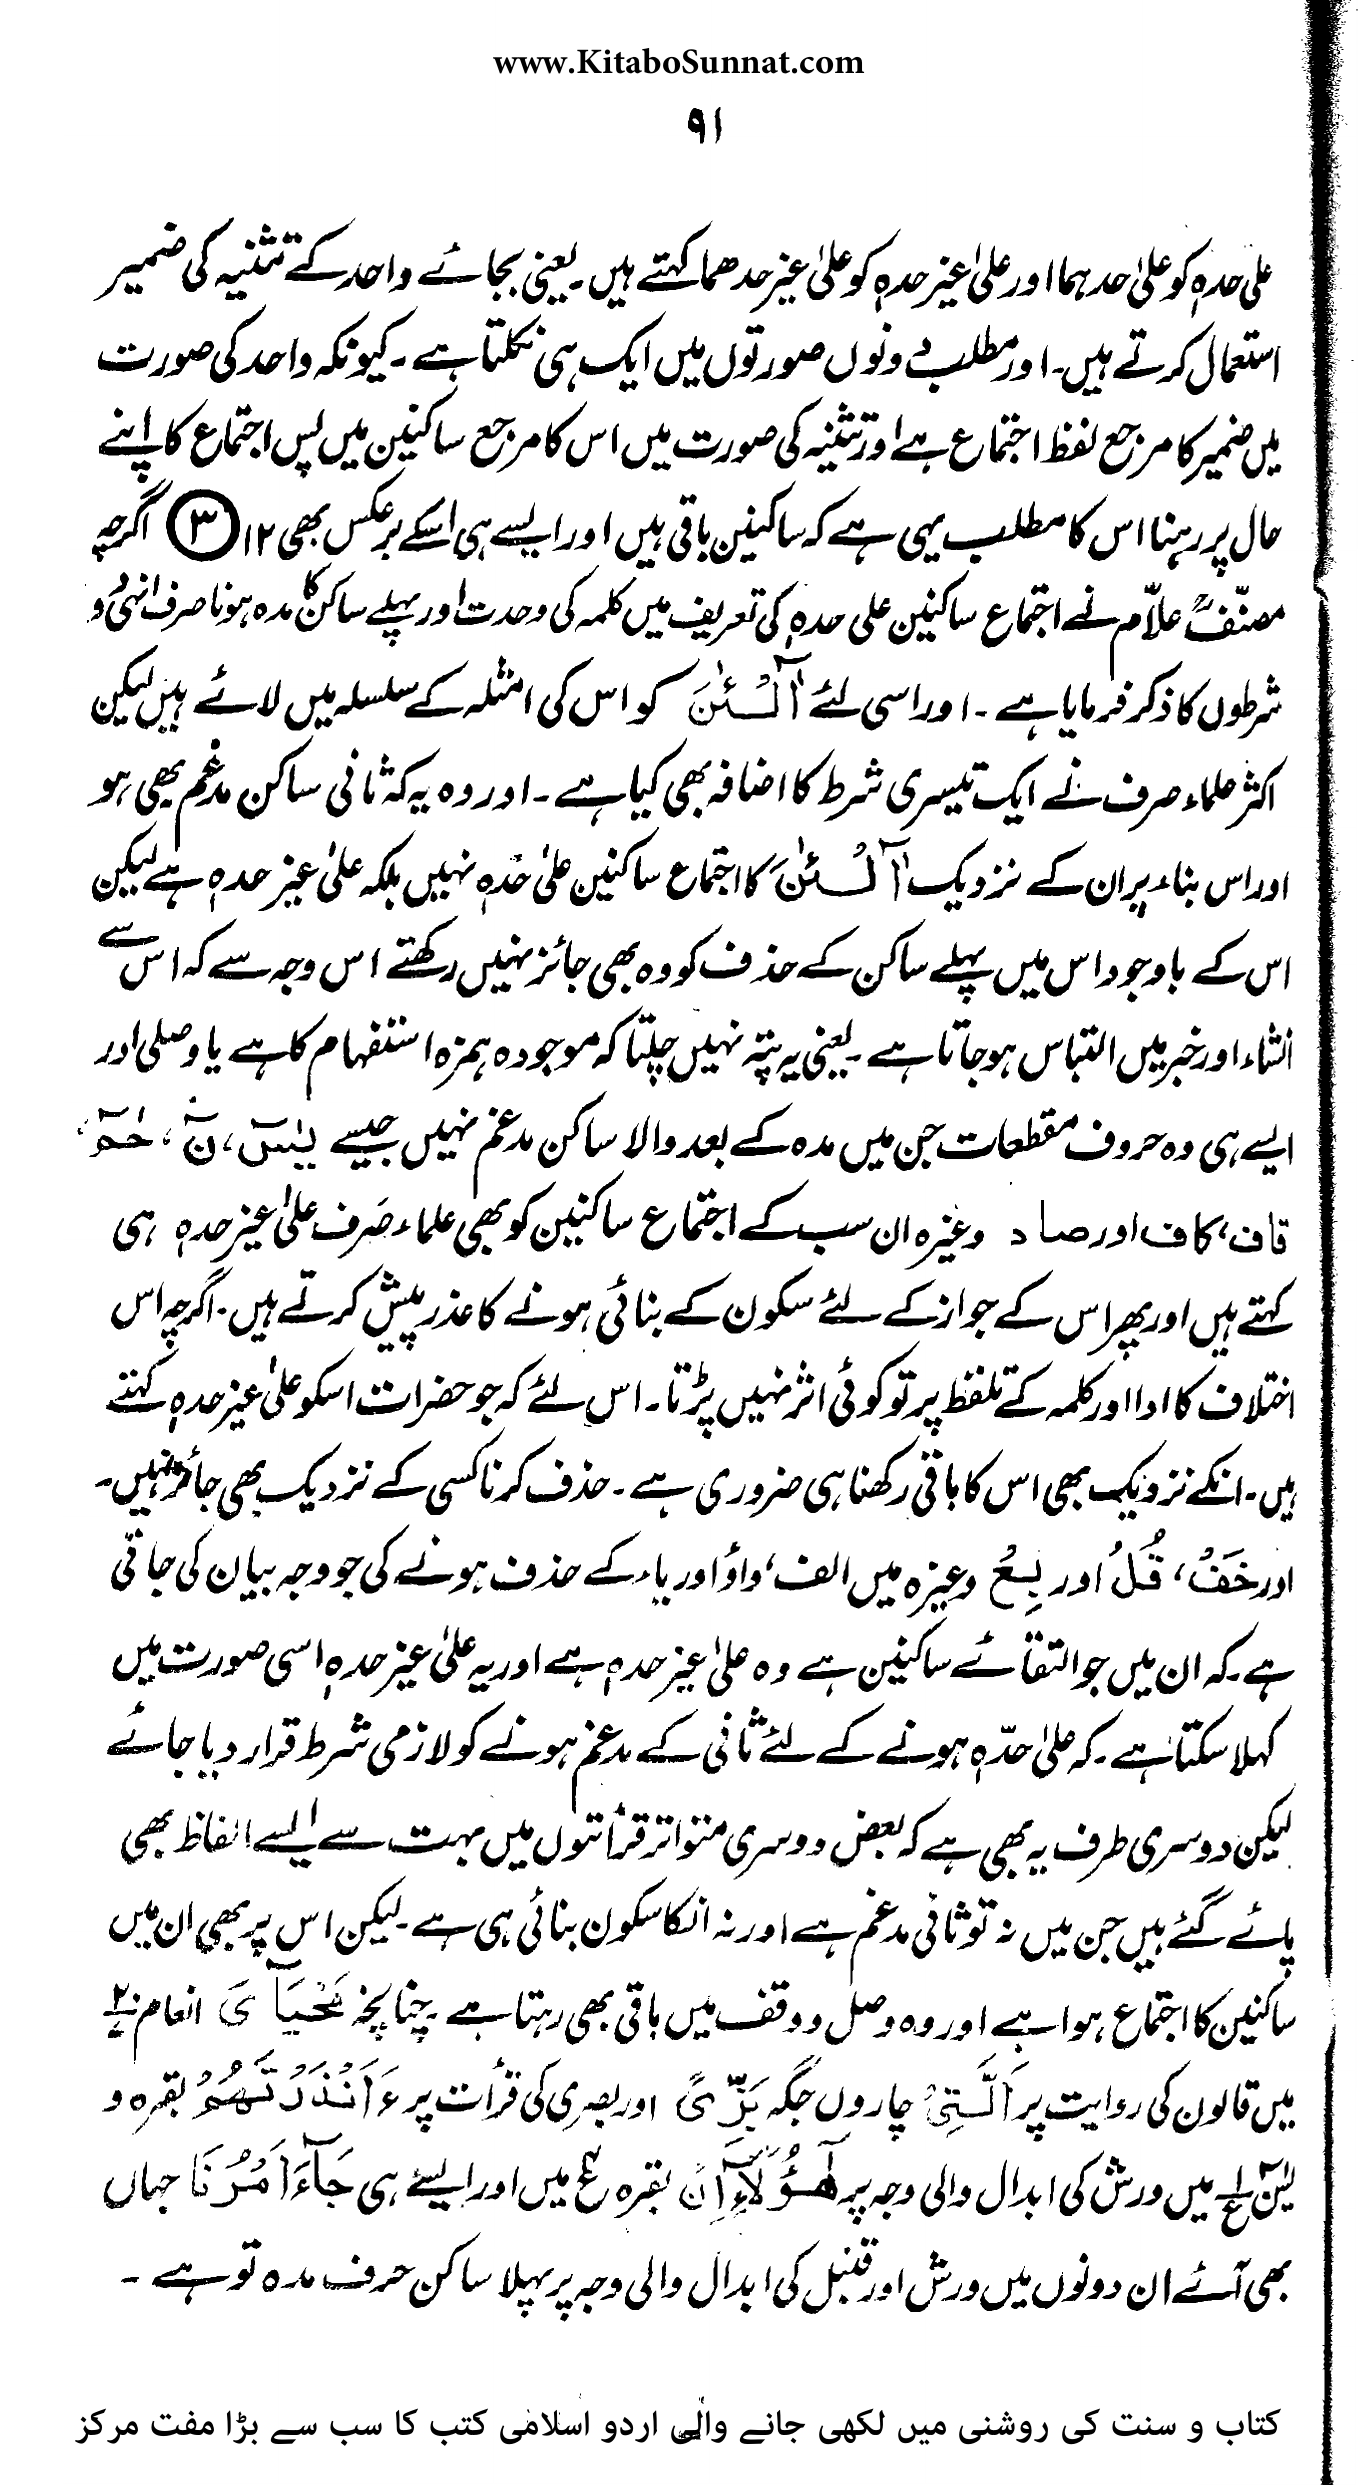 www.KitaboSunnat.com
۹۱
علی حدہٖ کو علیٰ حدہما اور علیٰ غیر حدہٖ کو علیٰ غیر حدھما کہتے ہیں۔ یعنی بجائے واحد کے تثنیہ کی ضمیر
استعمال کرتے ہیں۔ اور مطلب دونوں صورتوں میں ایک ہی نکلتا ہے۔ کیونکہ واحد کی صورت
میں ضمیر کا مرجع لفظ اجتماع ہے اور تثنیہ کی صورت میں اس کا مرجع ساکنین ہیں پس اجتماع کا اپنے
حال پر رہنا اس کا مطلب یہی ہے کہ ساکنین باقی ہیں اور ایسے ہی اسکے برعکس بھی ۱۲ ③ اگرچہ
مصنّفؒ علاّم نے اجتماع ساکنین علی حدہٖ کی تعریف میں کلمہ کی وحدت اور پہلے ساکن کا مدہ ہونا صرف انہی دو
شرطوں کا ذکر فرمایا ہے۔ اور اسی لئے آٰلْـٰٔنَ کو اس کی امثلہ کے سلسلہ میں لائے ہیں لیکن
اکثر علماء صرف نے ایک تیسری شرط کا اضافہ بھی کیا ہے۔ اور وہ یہ کہ ثانی ساکن مدغم بھی ہو
اور اس بناء پر ان کے نزدیک آٰلْـٰٔنَ کا اجتماع ساکنین علیٰ حدہٖ نہیں بلکہ علیٰ غیر حدہٖ ہے لیکن
اس کے باوجود اس میں پہلے ساکن کے حذف کو وہ بھی جائز نہیں رکھتے اس وجہ سے کہ اس سے
انشاء اور خبر میں التباس ہو جاتا ہے۔ یعنی یہ پتہ نہیں چلتا کہ موجودہ ہمزہ استفہام کا ہے یا وصلی اور
ایسے ہی وہ حروف مقطعات جن میں مدہ کے بعد والا ساکن مدغم نہیں جیسے یٰسٓ، نٓ، حٰمٓ،
قاف، کاف اور صاد وغیرہ ان سب کے اجتماع ساکنین کو بھی علماء صَرف علیٰ غیر حدہٖ ہی
کہتے ہیں اور پھر اس کے جواز کے لئے سکون کے بنائی ہونے کا عذر پیش کرتے ہیں۔ اگرچہ اس
اختلاف کا ادا اور کلمہ کے تلفظ پر تو کوئی اثر نہیں پڑتا۔ اس لئے کہ جو حضرات اسکو علیٰ غیر حدہٖ کہتے
ہیں۔ انکے نزدیک بھی اس کا باقی رکھنا ہی ضروری ہے۔ حذف کرنا کسی کے نزدیک بھی جائز نہیں۔
اور خَفْ، قُلْ اور بِعْ وغیرہ میں الف، واؤ اور یاء کے حذف ہونے کی جو وجہ بیان کی جاتی
ہے۔ کہ ان میں جو التقائے ساکنین ہے وہ علیٰ غیر حدہٖ ہے اور یہ علیٰ غیر حدہٖ اسی صورت میں
کہلا سکتا ہے۔ کہ علیٰ حدّہٖ ہونے کے لئے ثانی کے مدغم ہونے کو لازمی شرط قرار دیا جائے
لیکن دوسری طرف یہ بھی ہے کہ بعض دوسری متواتر قرأتوں میں بہت سے ایسے الفاظ بھی
پائے گئے ہیں جن میں نہ تو ثانی مدغم ہے اور نہ انکا سکون بنائی ہی ہے۔ لیکن اس پر بھی ان میں
ساکنین کا اجتماع ہوا ہے اور وہ وصل و وقف میں باقی بھی رہتا ہے۔ چنانچہ مَحْیَآیَ انعام
میں قالون کی روایت پر اَلّٰـتِیْ چاروں جگہ بَزّیؒ اور بصری کی قرأت پر ءَاَنْذَرْتَهُمْ بقرہ و
یٰسٓ میں ورش کی ابدال والی وجہ پر هٰٓؤُلَآءِ اِنْ بقرہ میں اور ایسے ہی جَآءَ اَمْرُنَا جہاں
بھی آئے ان دونوں میں ورش اور قنبل کی ابدال والی وجہ پر پہلا ساکن حرف مدہ تو ہے۔
کتاب و سنت کی روشنی میں لکھی جانے والی اردو اسلامی کتب کا سب سے بڑا مفت مرکز